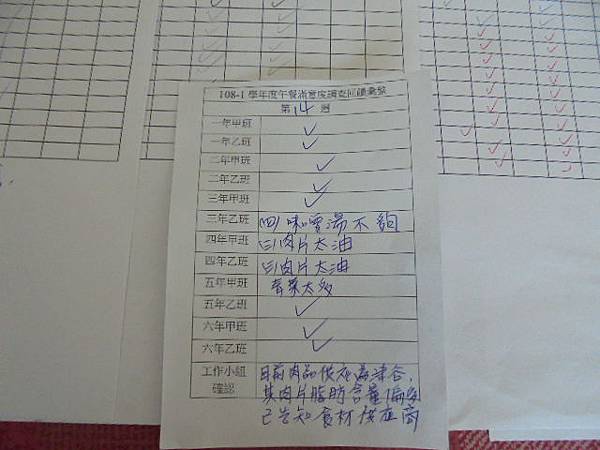 108-1 學年度午餐滿意度調查回饋彙整
第 14 週
一年甲班 ✓
一年乙班 ✓
二年甲班 ✓
二年乙班 ✓
三年甲班 ✓
三年乙班 (四)味噌湯不夠
四年甲班 (三)肉片太油
四年乙班 (三)肉片太油
五年甲班 青菜太多
五年乙班 ✓
六年甲班 ✓
六年乙班 ✓
工作小組 目前肉品供應為
確認 其肉片脂肪含量偏
已告知食材供應商